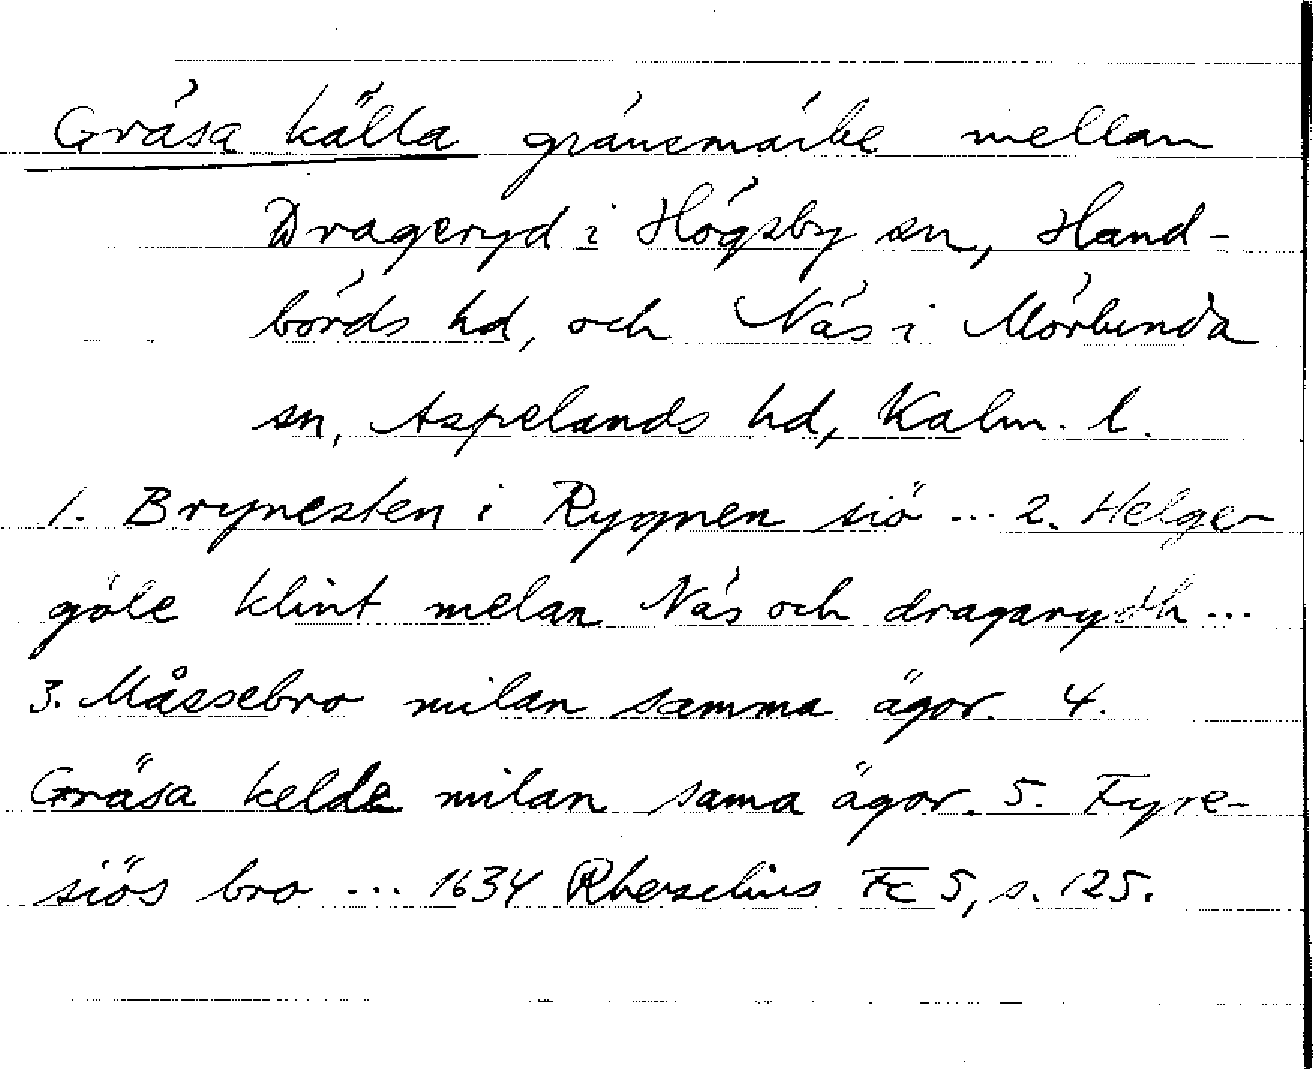 Gräsa källa gränsmärke mellan
Drageryd i Högsby sn, Hand-
börds hd, och Näs i Mörlunda
sn, Aspelands hd, Kalm. l.
1. Brynesten i Rygnen siö ... 2. Helge-
göle klint melan Näs och dragarydh ...
3. Måssebro milan samma ägor. 4.
Gräsa kelde milan sama ägor. 5. Fyre-
siös bro ... 1634 Rhezelius FC 5, s. 125.